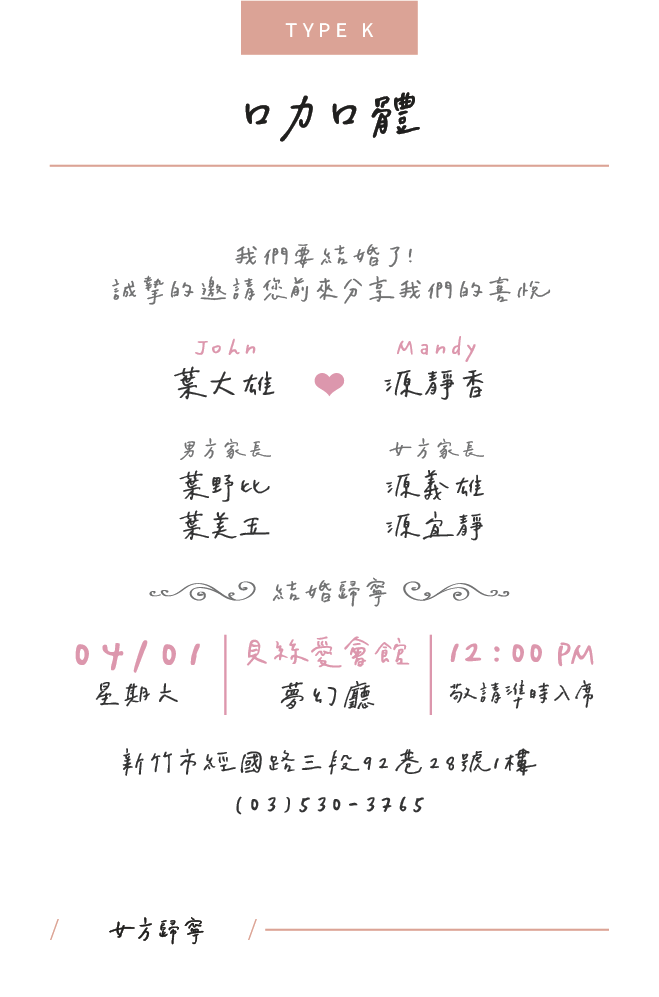 TYPE K
口力口體
我們要結婚了!
誠摯的邀請您前來分享我們的喜悅
John Mandy
葉大雄 ❤ 源靜香
男方家長 女方家長
葉野比 源義雄
葉美玉 源宜靜
結婚歸寧
04/01 貝絲愛會館 12:00 PM
星期六 夢幻廳 敬請準時入席
新竹市經國路三段92巷28號1樓
(03)530-3765
/ 女方歸寧 /